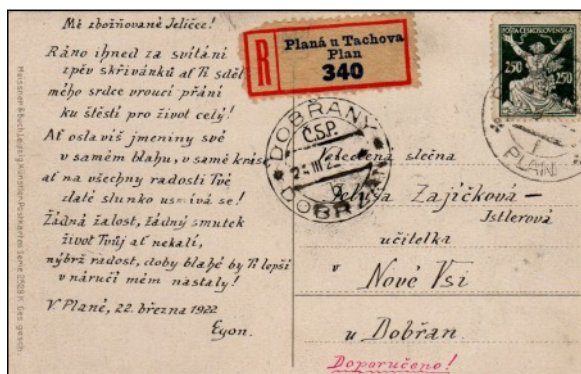 Mé zbožňované Jeličce!
Ráno ihned za svítání
zpěv skřivánků ať Ti sděl
mého srdce vroucí přání
ku štěstí pro život celý!
Ať oslavíš jmeniny své
v samém blahu, v samé kráse
ať na všechny radosti Tvé
zlaté slunko usmívá se!
Žádná žalost, žádný smutek
život Tvůj ať nekalí,
nýbrž radost, doby blahé by Ti lepší
v náručí mém nastaly!
V Plané, 22. března 1922
Egon.
R
Planá u Tachova
Plan
340
POŠTA ČESKOSLOVENSKÁ
250 250
DOBŘANY
Č.S.P.
24 III 2
DOBR
PLAN
Velectěná slečna
Zajíčková-
Istlerová
učitelka
v Nové Vsi
u Dobřan
Doporučeno!
Meissner & Buch Leipzig Künstler-Postkarten Serie 2528 K Ges. gesch.